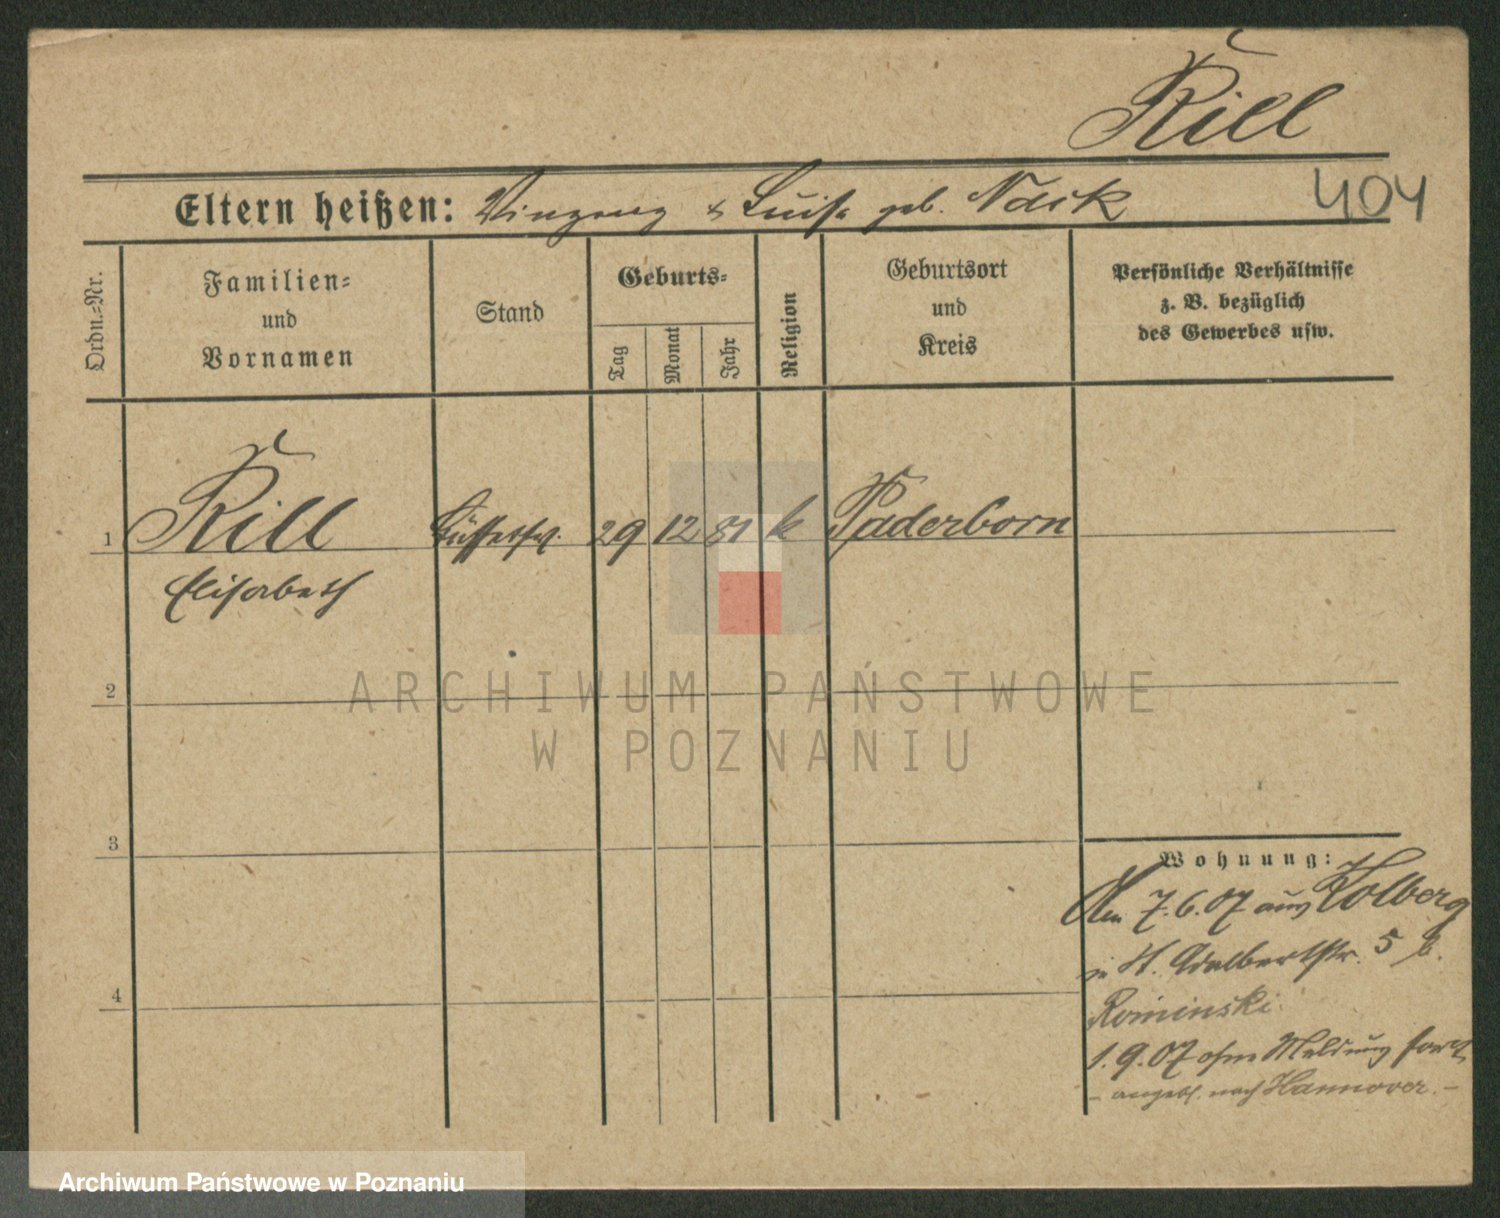 Rill
Eltern heißen: Vinzenz & Luise geb. Nack
404
Ordn.-Nr.
Familien-
und
Vornamen
Stand
Geburts-
Tag
Monat
Jahr
Religion
Geburtsort
und
Kreis
Persönliche Verhältnisse
z. B. bezüglich
des Gewerbes usw.
1 Rill 29 12 81 k Paderborn
Elisabeth
2
3
4
Wohnung:
Am 7.6.07 aus Kolberg
in St. Adalbertstr. 5 b.
Rominski
1.9.07 ohne Meldung fort
- angebl. nach Hannover. -
ARCHIWUM PAŃSTWOWE
W POZNANIU
Archiwum Państwowe w Poznaniu